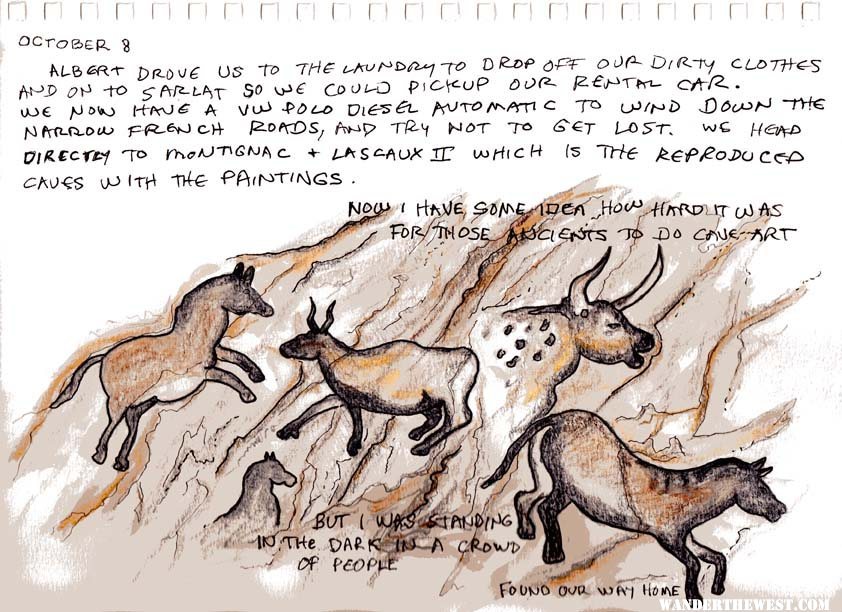 OCTOBER 8
ALBERT DROVE US TO THE LAUNDRY TO DROP OFF OUR DIRTY CLOTHES
AND ON TO SARLAT SO WE COULD PICKUP OUR RENTAL CAR.
WE NOW HAVE A VW POLO DIESEL AUTOMATIC TO WIND DOWN THE
NARROW FRENCH ROADS, AND TRY NOT TO GET LOST. WE HEAD
DIRECTLY TO MONTIGNAC + LASCAUX II WHICH IS THE REPRODUCED
CAVES WITH THE PAINTINGS.
NOW I HAVE SOME IDEA HOW HARD IT WAS
FOR THOSE ANCIENTS TO DO CAVE ART
BUT I WAS STANDING
IN THE DARK IN A CROWD
OF PEOPLE
FOUND OUR WAY HOME
WANDERTHEWEST.COM